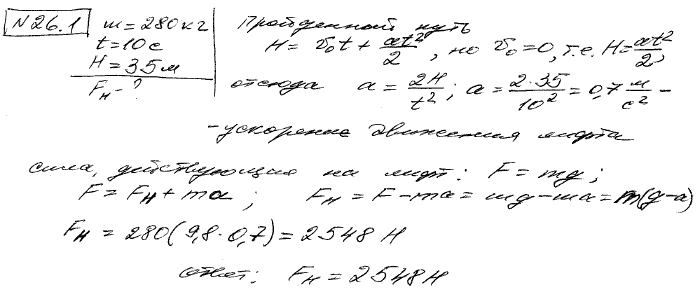 N 26.1 m = 280 кг Пройденный путь
t = 10 с H = v₀t + at²/2, но v₀ = 0, т.е. H = at²/2,
H = 35 м
Fн - ? отсюда a = 2H/t²; a = 2·35/10² = 0,7 м/с² -
- ускорение движения лифта
сила, действующая на лифт: F = mg;
F = Fн + ma; Fн = F - ma = mg - ma = m(g-a)
Fн = 280(9,8·0,7) = 2548 Н
ответ: Fн = 2548 Н